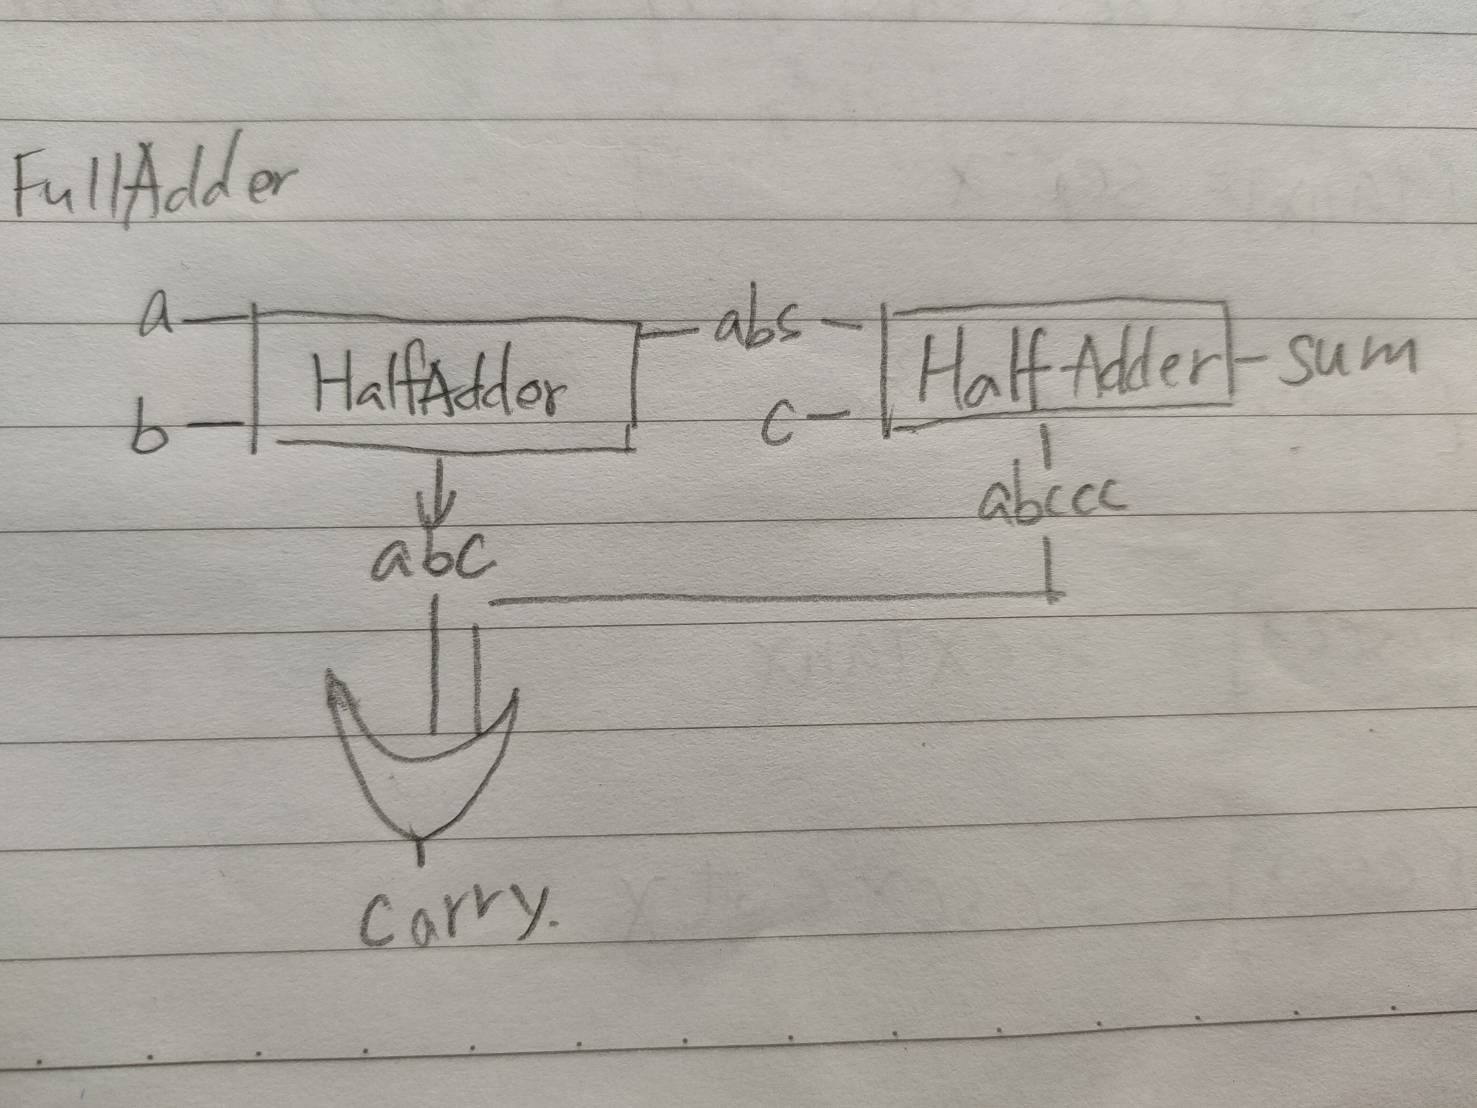 FullAdder
a
HalfAdder
abs
Half Adder
sum
b
c
abc
abccc
carry.